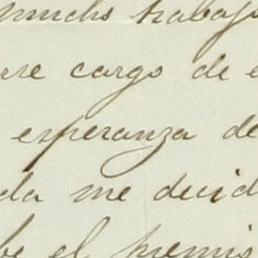 mucho trabajo
me cargo de e
esperanza de
da me decid
be el premio